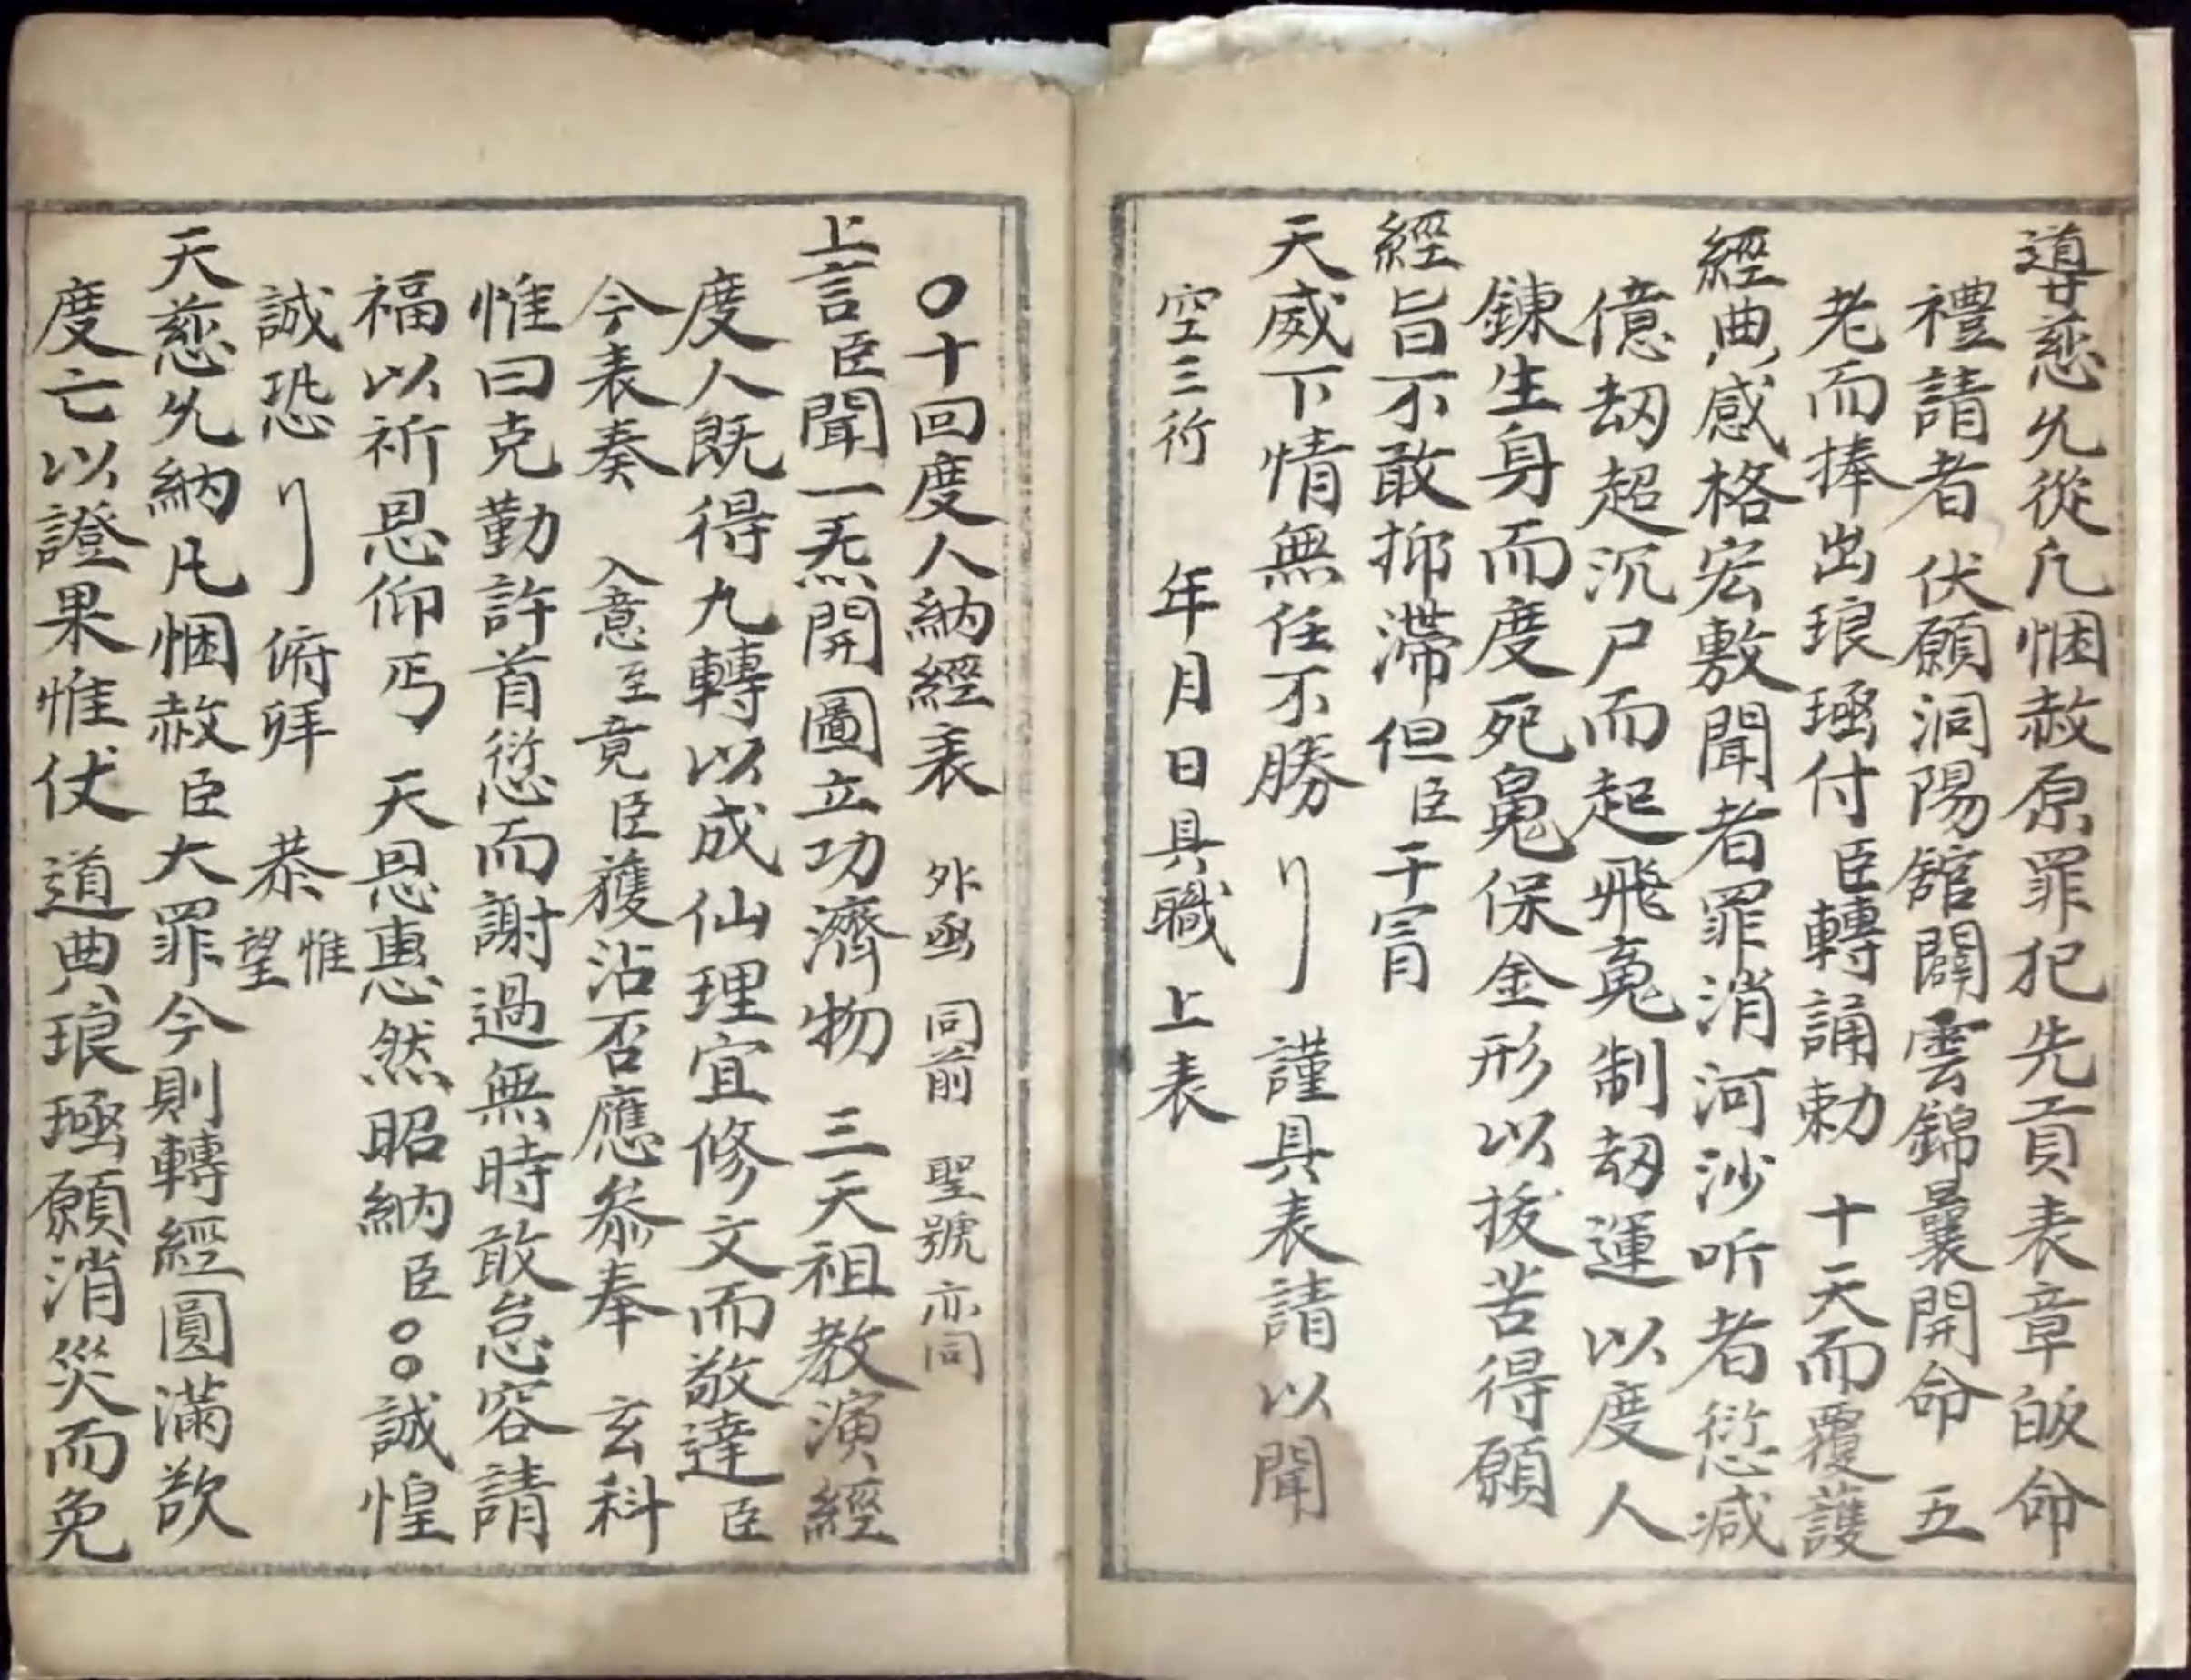 導慈允從凡悃赦原罪犯先貢表章皈命
禮請者 伏願洞陽舘闢雲錦曩開命 五
老而捧出琅函付臣轉誦勅 十天而覆護
經典感格宏敷聞者罪消河沙听者愆减
億刼超沉尸而起飛䰟制刼運以度人
鍊生身而度死䰟保金形以拔苦得願
經旨不敢抑滯但臣干冐
天威下情無任不勝刂謹具表請以聞
空三行 年月日具職上表
〇十回度人納經表 外函 同前 聖號亦同
上言臣聞一炁開圖立功濟物 三天祖教演經
度人既得九轉以成仙理宜修文而敬達臣
今表奏 入意至竟臣獲沾否應叅奉 玄科
惟曰克勤許首愆而謝過無時敢怠容請
福以祈恩仰丐 天恩惠然昭納臣〇〇誠惶
誠恐刂俯拜 恭惟望
天慈允納凡悃赦臣大罪今則轉經圓滿欲
度亡以證果惟伏 道典琅函願消災而免